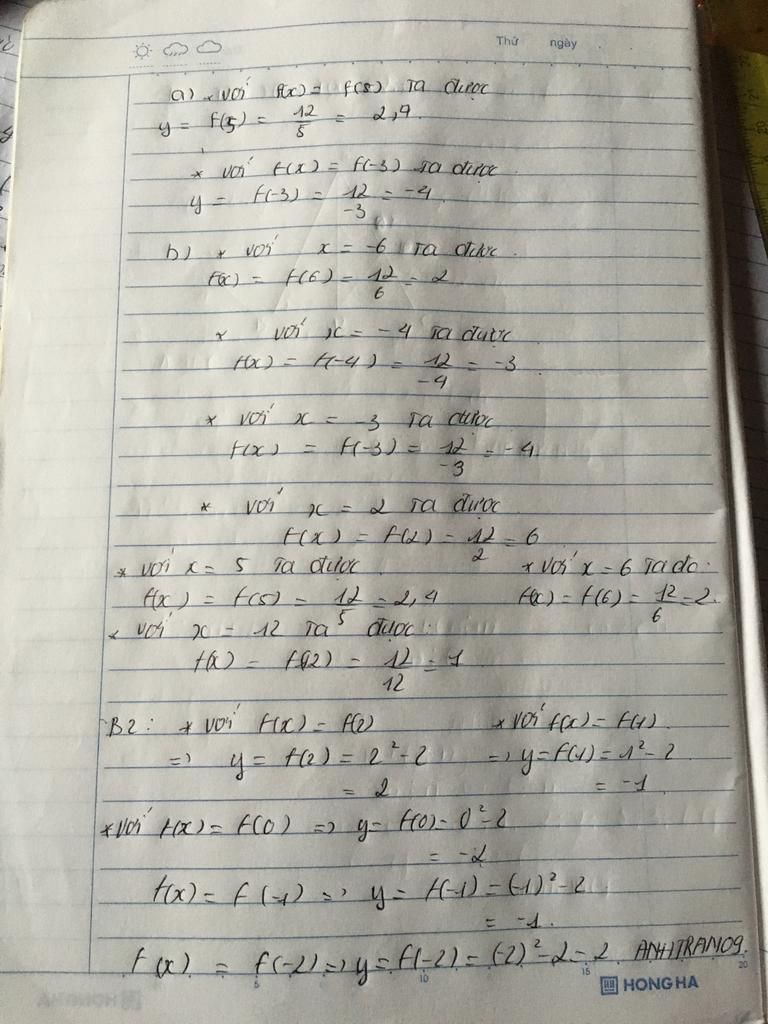 Thứ ngày
a) * với f(x) = f(5) Ta được
y = f(5) = 12/5 = 2,4
* với f(x) = f(-3) Ta được
y = f(-3) = 12/-3 = -4
b) * với x = -6 Ta được
f(x) = f(6) = 12/6 = 2
* với x = -4 Ta được
f(x) = f(-4) = 12/-4 = -3
* với x = -3 Ta được
f(x) = f(-3) = 12/-3 = -4
* với x = 2 Ta được
f(x) = f(2) = 12/2 = 6
* với x = 5 Ta được * với x = 6 Ta đc:
f(x) = f(5) = 12/5 = 2,4 f(x) = f(6) = 12/6 = 2
* với x = 12 Ta được:
f(x) = f(12) = 12/12 = 1
B2: * với f(x) = f(2) * với f(x) = f(1)
=> y = f(2) = 2² - 2 => y = f(1) = 1² - 2
= 2 = -1
* với f(x) = f(0) => y = f(0) = 0² - 2
= -2
f(x) = f(-1) => y = f(-1) = (-1)² - 2
= -1.
f(x) = f(-2) => y = f(-2) = (-2)² - 2 = 2 ANHTRAN09
5 10 15 20
HONG HA